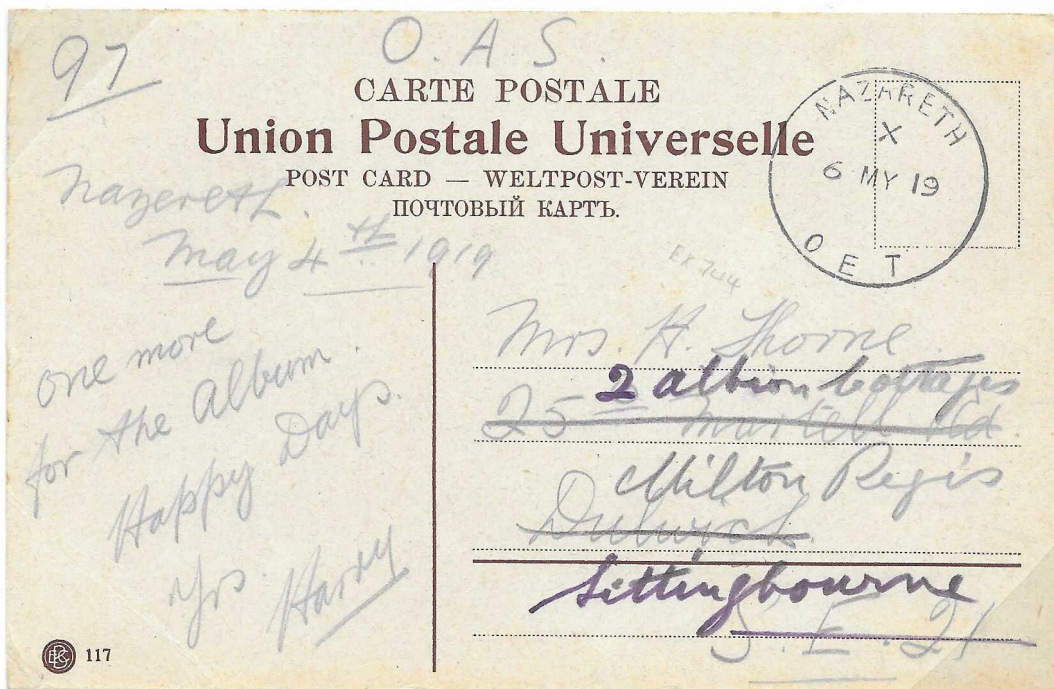 97
O.A.S.
CARTE POSTALE
Union Postale Universelle
POST CARD — WELTPOST-VEREIN
ПОЧТОВЫЙ КАРТЪ.
NAZARETH
X
6 MY 19
OET
Nazereth.
May 4th 1919
one more
for the Album.
Happy Days.
Yrs
Harry
Mrs. H. Thorne
2 albion Cottages
25 Martell Rd.
Milton Regis
Dulwich
Sittingbourne
S.E. 21
117